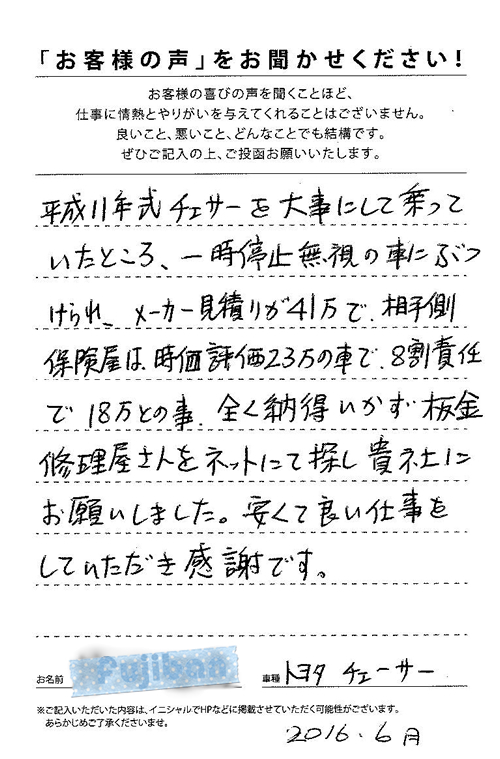 「お客様の声」をお聞かせください！
お客様の喜びの声を聞くことほど、
仕事に情熱とやりがいを与えてくれることはございません。
良いこと、悪いこと、どんなことでも結構です。
ぜひご記入の上、ご投函お願いいたします。
平成11年式チェサーを大事にして乗って
いたところ、一時停止無視の車にぶつ
けられ、メーカー見積りが41万で、相手側
保険屋は、時価評価23万の車で、8割責任
で18万との事、全く納得いかず板金
修理屋さんをネットにて探し貴社に
お願いしました。安くて良い仕事を
していただき感謝です。
お名前 Fujiban 車種 トヨタ チェーサー
※ご記入いただいた内容は、イニシャルでHPなどに掲載させていただく可能性がございます。
あらかじめご了承くださいませ。
2016.6月